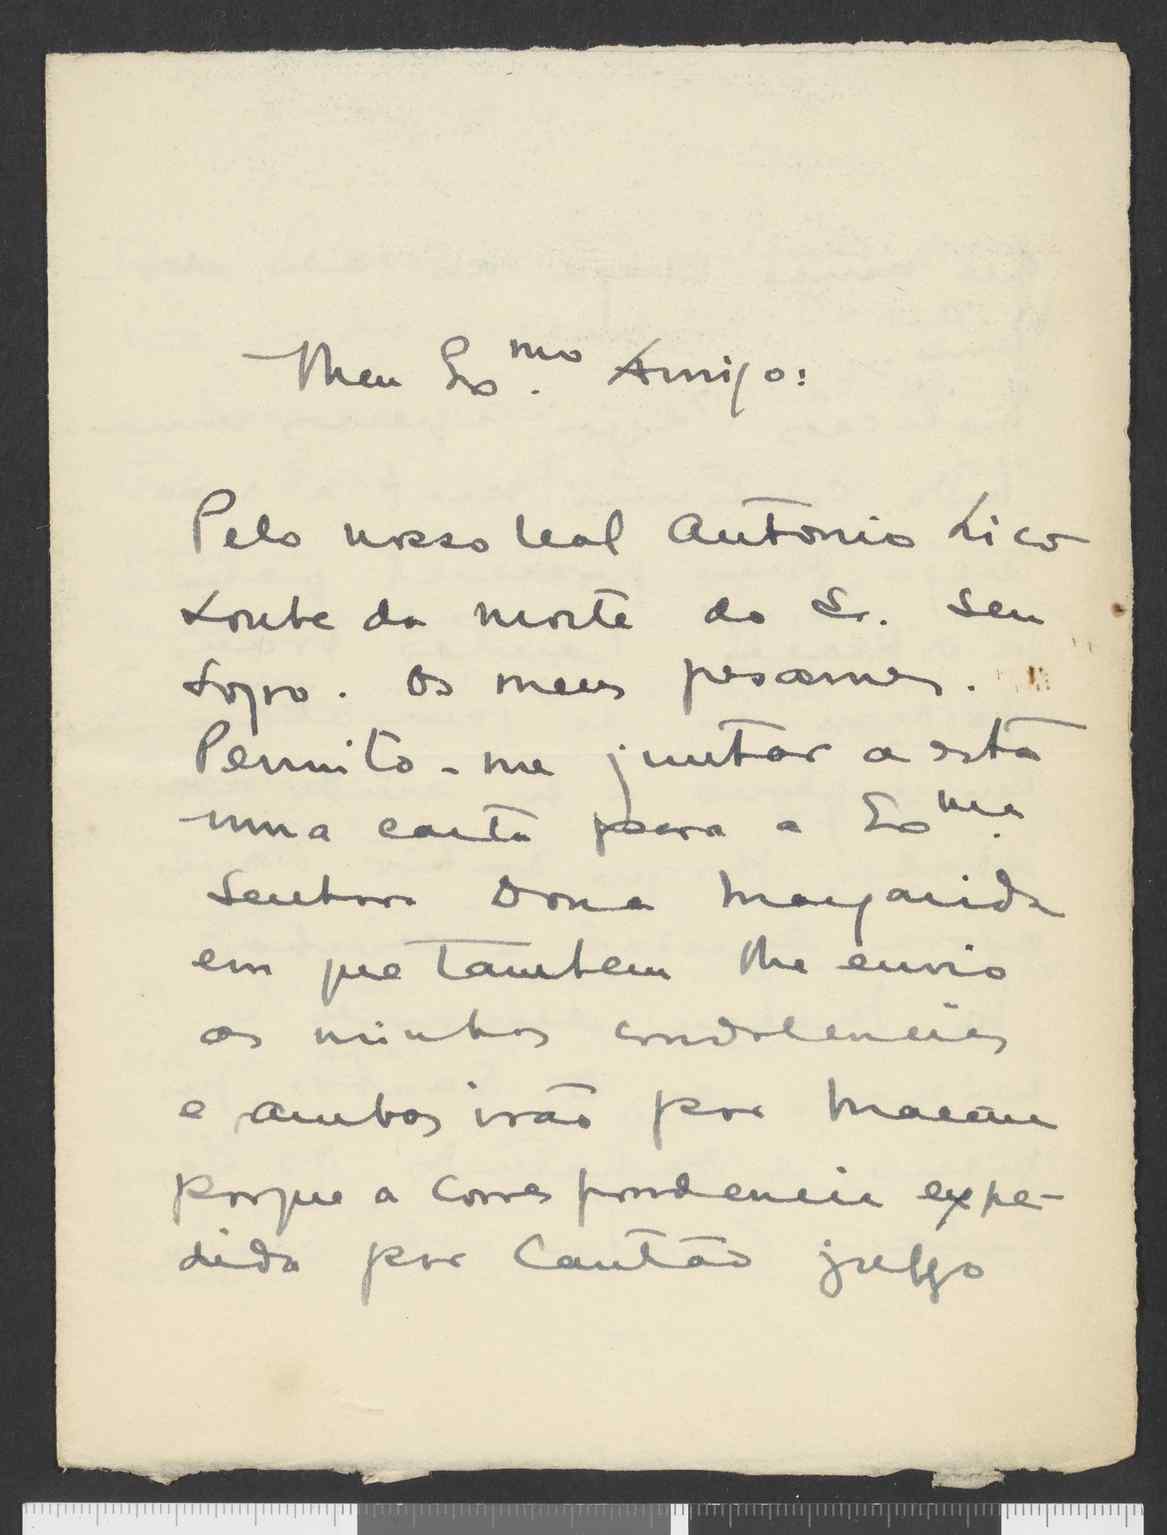 Meu Ex.mo Amigo:
Pelo nosso leal Antonio Lico
soube da morte do Sr. seu
Sogro. Os meus pesames.
Permito-me juntar a esta
uma carta para a Ex.ma
Senhora Dona Margarida
em que tambem lhe envio
as minhas condolencias
e ambas irão por Macau
porque a correspondencia expe-
dida por Cantão julgo